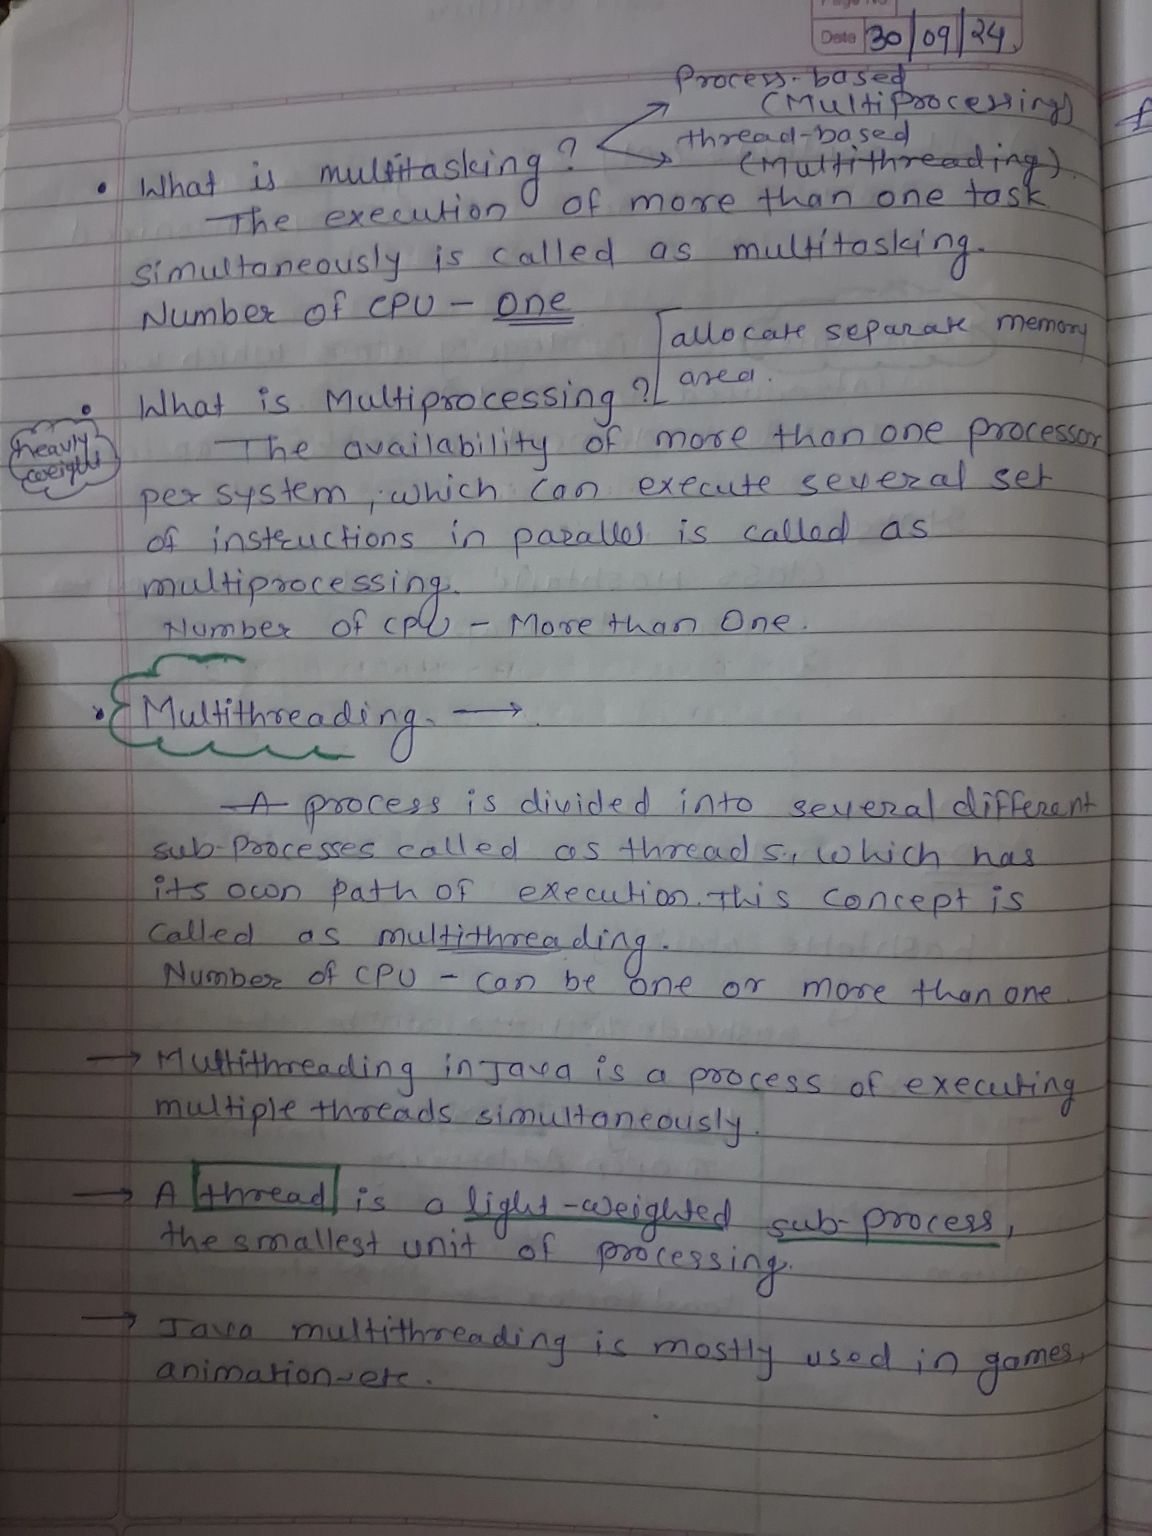 Page No
Date 30/09/24
Process-based
(Multiprocessing)
thread-based
(Multithreading)
• What is multitasking?
The execution of more than one task
simultaneously is called as multitasking.
Number of CPU - one
allocate separate memory
area.
• What is Multiprocessing?
heavy
weight
The availability of more than one processor
per system, which can execute several set
of instructions in parallel is called as
multiprocessing.
Number of CPU - More than One.
• Multithreading. →
A process is divided into several different
sub-Processes called as threads, which has
its own path of execution. This concept is
called as multithreading.
Number of CPU - can be one or more than one
→ Multithreading in Java is a process of executing
multiple threads simultaneously.
→ A thread is a light-weighted sub-process,
the smallest unit of processing.
→ Java multithreading is mostly used in games,
animation etc.